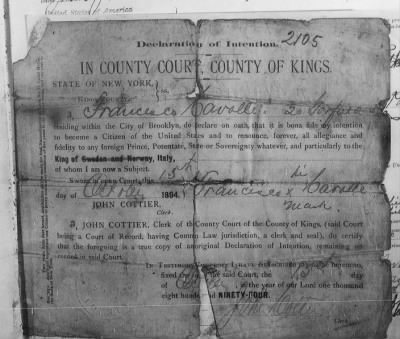 United States of America
Declaration of Intention. 2105
IN COUNTY COURT, COUNTY OF KINGS.
STATE OF NEW YORK, } ss
KINGS COUNTY.
I, Francesco Cavallo
residing within the City of Brooklyn, do declare on oath, that it is bona fide my intention
to become a Citizen of the United States and to renounce, forever, all allegiance and
fidelity to any foreign Prince, Potentate, State or Sovereignty whatever, and particularly to the
King of Sweden and Norway, Italy,
of whom I am now a Subject.
Sworn in open Court, this 15th his
day of October 1894. Francesco x Cavallo
JOHN COTTIER, mark
Clerk.
I, JOHN COTTIER, Clerk of the County Court of the County of Kings, (said Court
being a Court of Record, having Common Law jurisdiction, a clerk and seal), do certify
that the foregoing is a true copy of an original Declaration of Intention, remaining on
record in said Court.
IN TESTIMONY WHEREOF, I have hereunto
fixed the said Court, the 15th day
of October in the year of our Lord one thousand
eight hundred and NINETY-FOUR.
John Cottier
Clerk